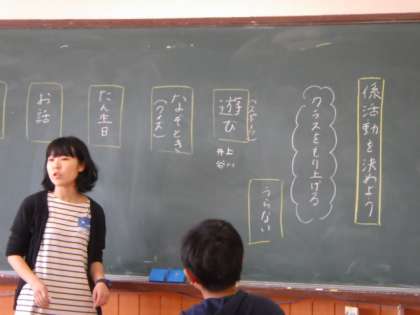 係活動を決めよう
クラスをもり上げる
うらない
遊び
(スポーツ)
井上
谷川
なぞとき
(クイズ)
たん生日
お話